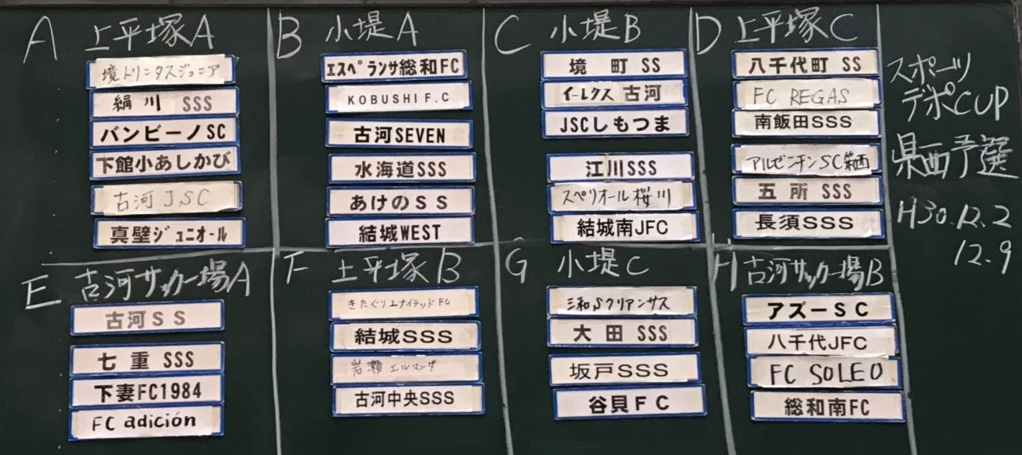 A 上平塚A
境トリニタスジュニア
絹川 SSS
バンビーノSC
下館小あしかび
古河JSC
真壁ジュニオール
B 小堤A
エスペランサ総和FC
KOBUSHI F.C
古河SEVEN
水海道SSS
あけのSS
結城WEST
C 小堤B
境町 SS
イーレクス 古河
JSCしもつま
江川SSS
スペリオール桜川
結城南JFC
D 上平塚C
八千代町 SS
FC REGAS
南飯田SSS
アルゼンチンSC筑西
五所 SSS
長須SSS
スポーツ
デポCUP
県西予選
H30.12.2
12.9
E 古河サッカー場A
古河SS
七重 SSS
下妻FC1984
FC adición
F 上平塚B
きたぐりユナイテッドFC
結城SSS
岩瀬エルマンダ
古河中央SSS
G 小堤C
三和Sクリアンサス
大田 SSS
坂戸SSS
谷貝FC
H 古河サッカー場B
アズーSC
八千代JFC
FC SOLEO
総和南FC